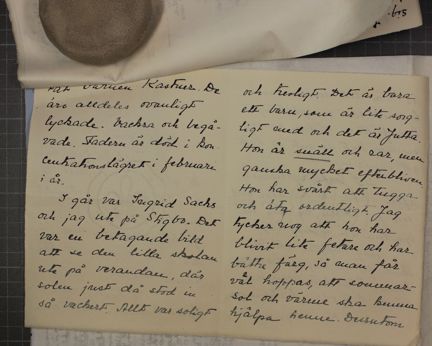 barnen Kastner. De
äro alldeles ovanligt
lyckade. Vackra och begå-
vade. Fadern är död i kon
centrationslägret i februari
i år.
I går var Ingrid Sachs
och jag ute på Stigbo. Det
var en betagande bild
att se den lilla skolan
ute på verandan, där
solen just då stod in
så vackert. Allt var soligt
och trevligt. Det är bara
ett barn, som är lite sorg-
ligt med och det är Jutta.
Hon är snäll och rar, men
ganska mycket efterbliven.
Hon har svårt att tugga
och äta ordentligt. Jag
tycker nog att hon har
blivit lite fetare och har
bättre färg, så man får
väl hoppas, att sommar-
sol och värme ska kunna
hjälpa henne. Dessutom